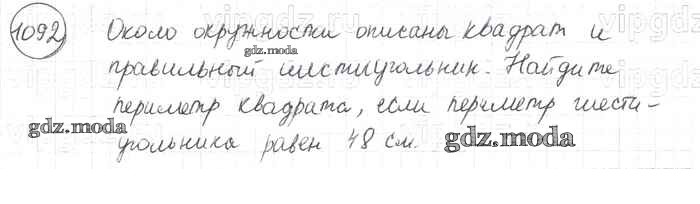 vipgdz
1092 Около окружности описаны квадрат и
gdz.moda
правильный шестиугольник. Найдите
периметр квадрата, если периметр шести-
gdz.moda
угольника равен 48 см.
gdz.moda